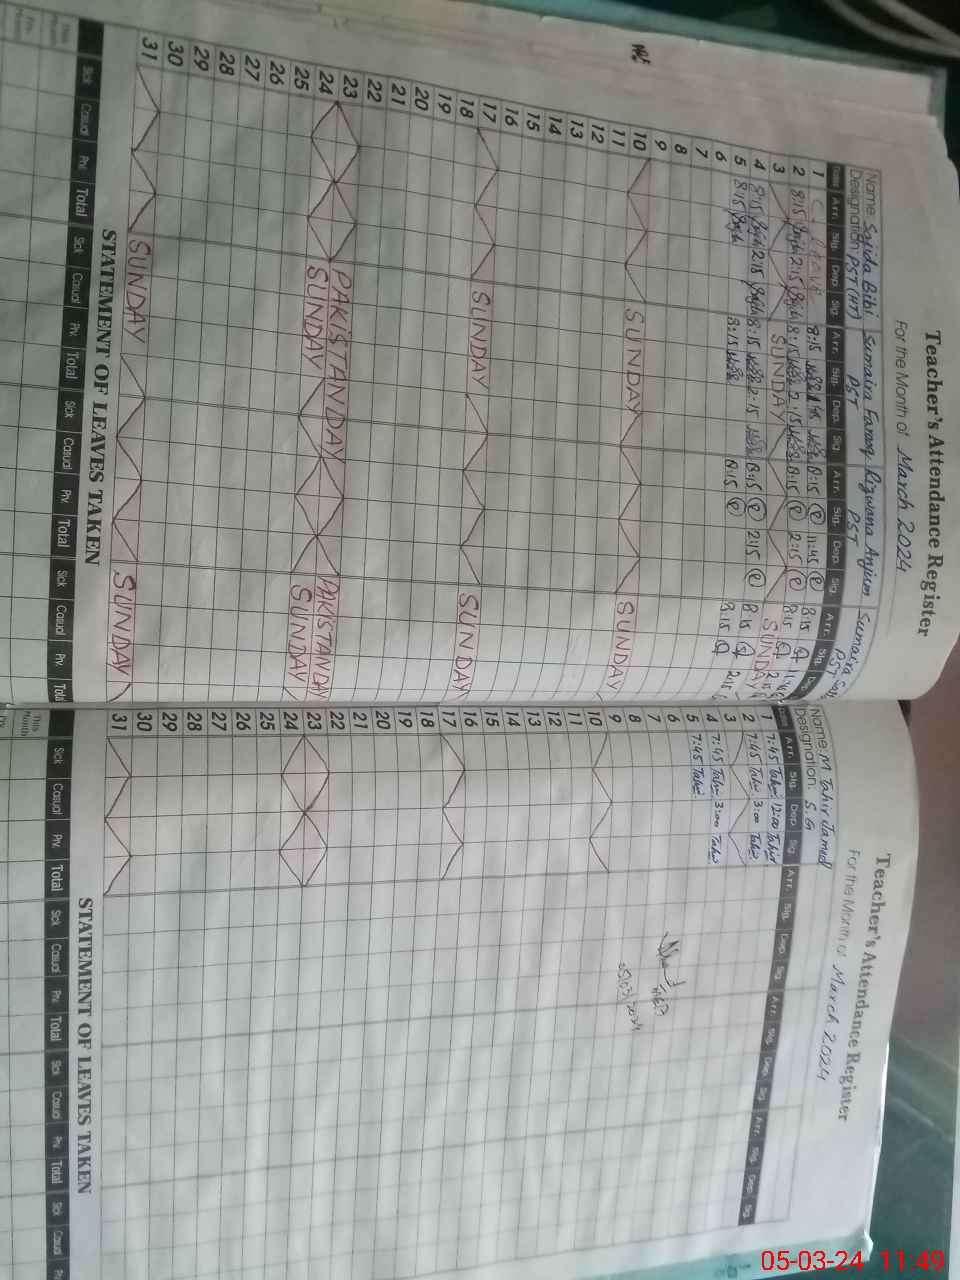 Teacher's Attendance Register
For the Month of March 2024
Name: Sajida Bibi Sumaira Farooq Rizwana Anjum Sumaira
Designation PST(HT) PST PST PST
Date Arr. Sig. Dep. Sig. Arr. Sig. Dep. Sig. Arr. Sig. Dep. Sig. Arr. Sig.
1 C. Leave 8:15 8:15 11:45 8:15
2 8:15 2:15 8:15 2:15 8:15 2:15 8:15
3 SUNDAY SUNDAY
4 8:15 2:15 8:15 2:15 8:15 2:15 8:15
5 8:15 8:15 8:15 8:15
6
7
8
9
10 SUNDAY SUNDAY
11
12
13
14
15
16
17 SUNDAY SUNDAY
18
19
20
21
22
23 PAKISTAN DAY PAKISTAN DAY
24 SUNDAY SUNDAY
25
26
27
28
29
30
31 SUNDAY SUNDAY
STATEMENT OF LEAVES TAKEN
Sick Casual Prv. Total Sick Casual Prv. Total Sick Casual Prv. Total Sick Casual Prv.
This Month
Teacher's Attendance Register
For the Month of March 2024
Name: M Tahir Jamil
Designation: S.G
Arr. Sig. Dep. Sig. Arr. Sig. Dep. Sig. Arr. Sig. Dep. Sig. Arr. Sig. Dep. Sig.
1 7:45 Tahir 12:00 Tahir
2 7:45 Tahir 3:00 Tahir
3
4 7:45 Tahir 3:00 Tahir
5 7:45 Tahir
6
7
8
9
10
11
12
13
14
15
16
17
18
19
20
21
22
23
24
25
26
27
28
29
30
31
05/03/2024
STATEMENT OF LEAVES TAKEN
Sick Casual Prv. Total Sick Casual Prv. Total Sick Casual Prv. Total Sick Casual
This Month
05-03-24 11:49